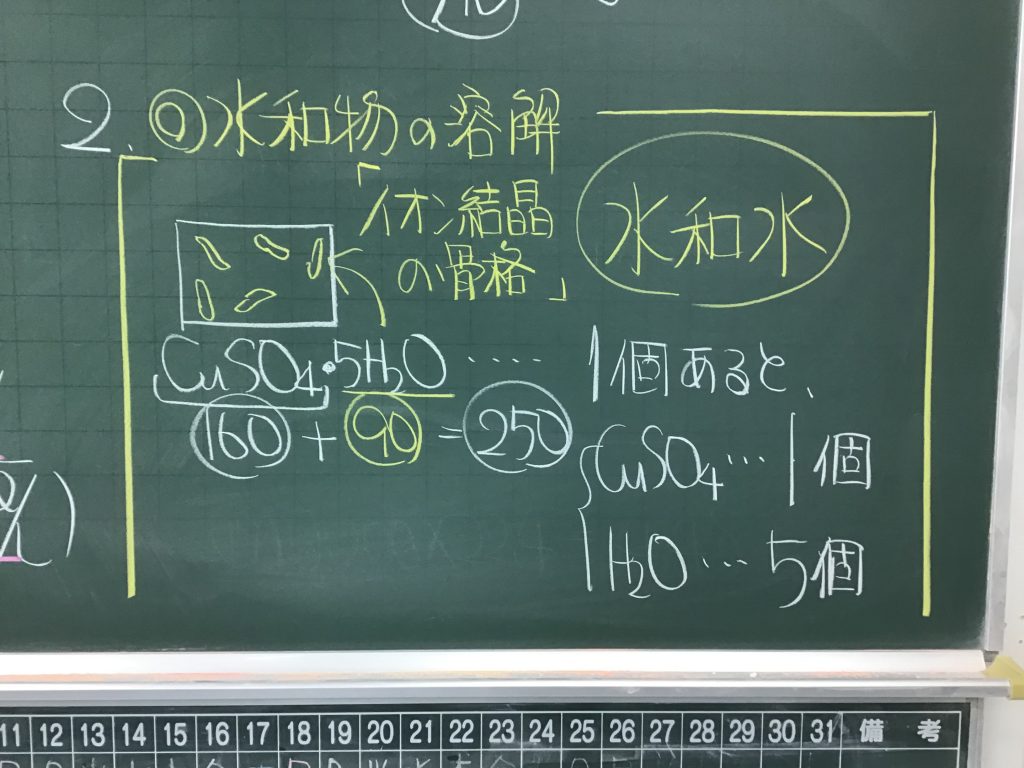 2. ◎水和物の溶解
「イオン結晶
の骨格」
水和水
CuSO₄・5H₂O ‥‥‥ 1個あると、
160 + 90 = 250
CuSO₄ … 1個
H₂O … 5個
11 12 13 14 15 16 17 18 19 20 21 22 23 24 25 26 27 28 29 30 31 備 考